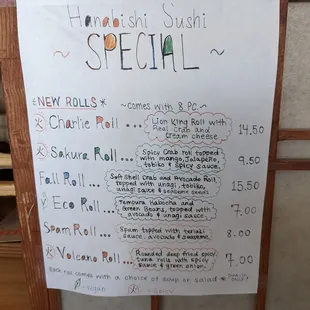 Hanabishi Sushi
~ SPECIAL ~
NEW ROLLS* ~comes with 8 PC.~
Charlie Roll ... Lion King Roll with
Real crab and
cream cheese 14.50
Sakura Roll ... Spicy Crab roll topped
with mango, Jalapeño,
tobiko & spicy sauce. 9.50
Fall Roll ... Soft shell Crab and Avocado Roll,
topped with unagi, tobiko,
unagi sauce & sesame seeds 15.50
Eco Roll ... Tempura Kabocha and
Green Beans, topped with
avocado & unagi sauce. 7.00
Spam Roll ... Spam topped with teriaki
sauce, avocado & sesame. 8.00
Volcano Roll ... Rounded deep fried spicy
tuna rolls with spicy
sauce & green onion. 7.00
Each roll comes with a choice of soup or salad